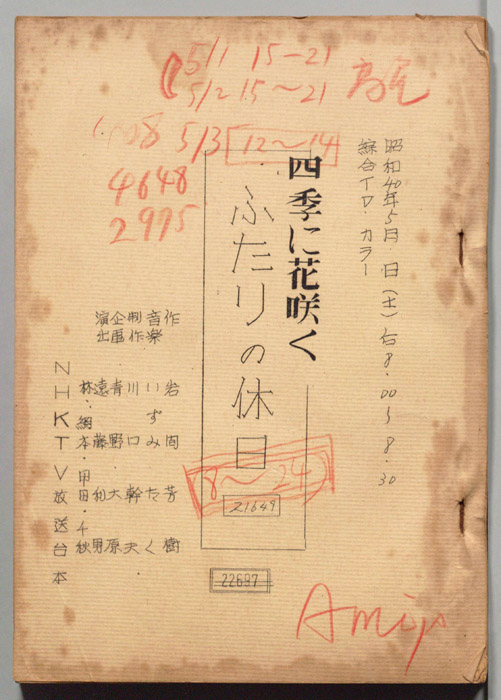 5/1 15-21
5/2 15~21
5/3 12~14
4648
昭和40年5月 日(土)后8.00〜8.30
綜合TV・カラー
四季に花咲く
ふたりの休日
作 岩間芳樹
音楽 いずみたく
制作 川口幹夫
企画 青野大原
演出 遠藤利男
NHKTV放送台本
18~24
21649
22697